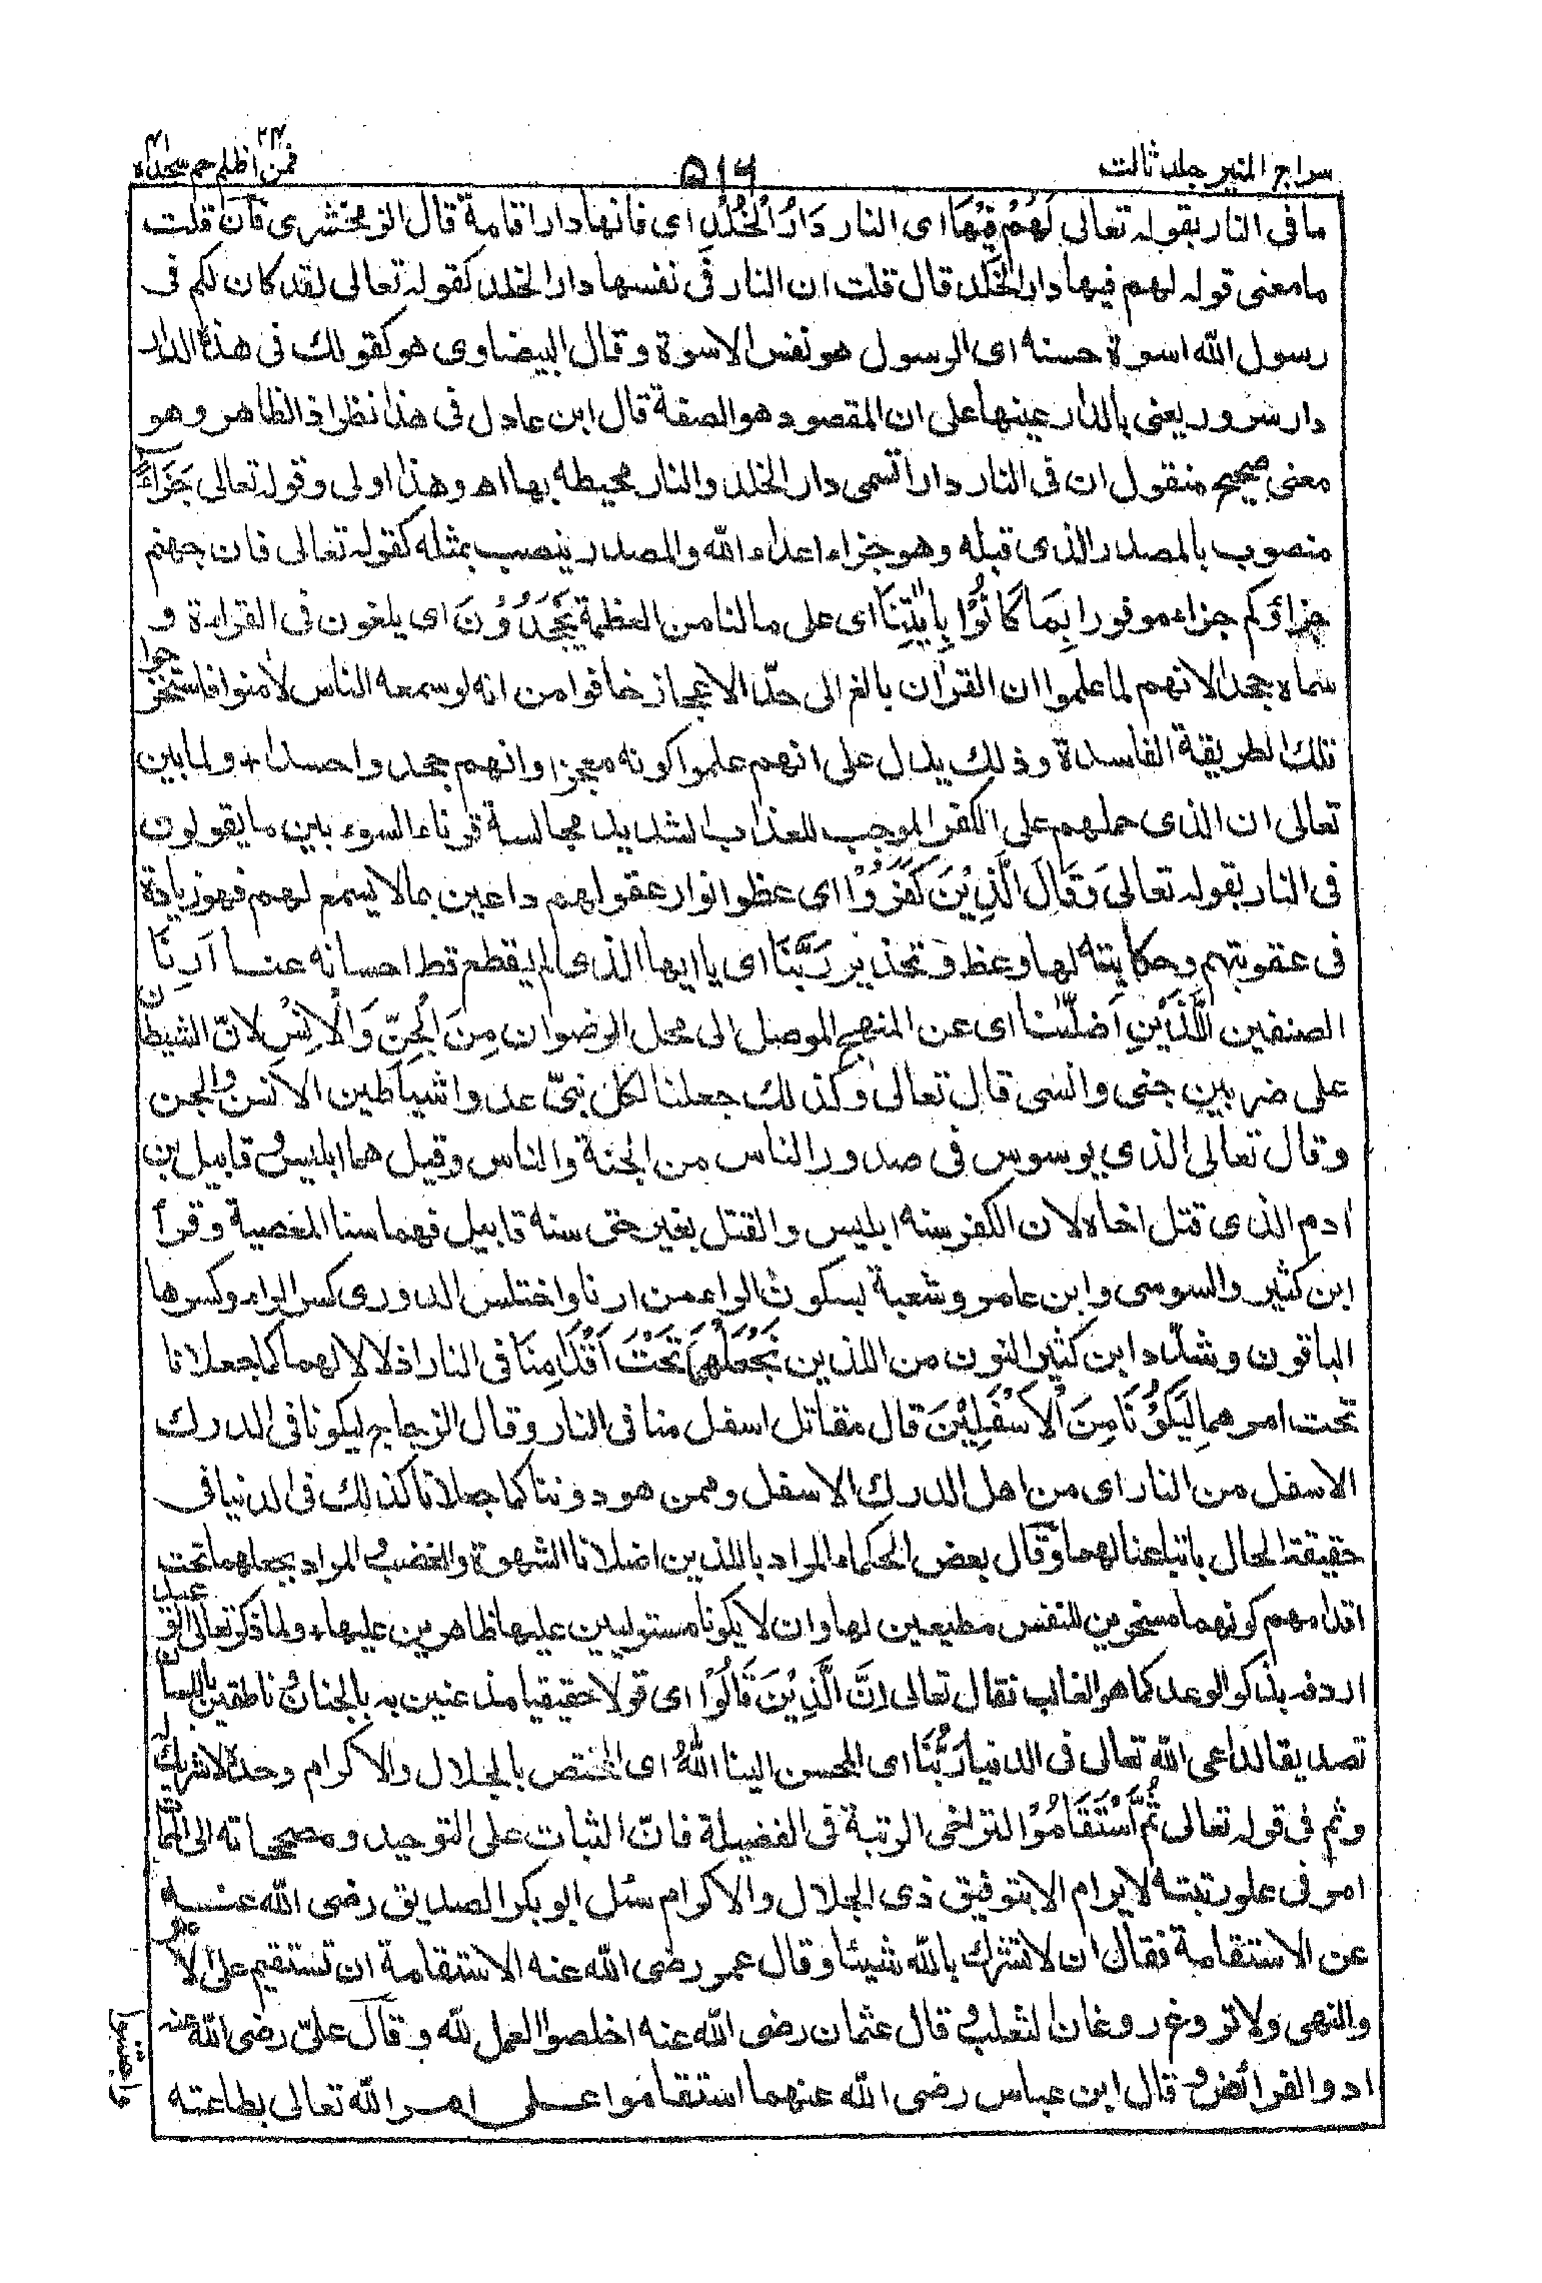 سراج المنير جلد ثالث
٥١٦
فمن اظلم ٢٤ حم سجدة ٤١
ما فى النار بقوله تعالى لَهُمْ فِيْهَا اى النار دَارُ الْخُلْدِ اى فانها دار اقامة قال الزمخشرى فان قلت
ما معنى قوله لهم فيها دار الخلد قال قلت ان النار فى نفسها دار الخلد كقوله تعالى لقد كان لكم فى
رسول الله اسوة حسنه اى الرسول هو نفس الاسوة وقال البيضاوى هو كقولك فى هذه الدار
دار سرور يعنى بالدار عينها على ان المقصود هو الصفة قال ابن عادل فى هذا نظر اذ الظاهر وهو
معنى صحيح منقول ان فى النار دارا تسمى دار الخلد والنار محيطه بها اه وهذا اولى وقوله تعالى جَزَآءً
منصوب بالمصدر الذى قبله وهو جزاء اعداء الله والمصدر ينصب بمثله كقوله تعالى فان جهنم
جزاؤكم جزاء موفورا بِمَا كَانُوْا بِاٰيٰتِنَا اى على ما لنا من العظمة يَجْحَدُوْنَ اى يلغون فى القراءة و
سماه جحدا لانهم لما علموا ان القرآن بالغ الى حدّ الاعجاز خافوا من انه لو سمعه الناس لآمنوا فاستخرجوا
تلك الطريقة الفاسدة وذلك يدل على انهم علموا كونه معجزا وانهم جحدوا حسدا + ولما بين
تعالى ان الذى حملهم على الكفر الموجب للعذاب الشديد مجالسة قرناء السوء بين ما يقولون
فى النار بقوله تعالى وَقَالَ الَّذِيْنَ كَفَرُوْا اى غطوا نوار عقولهم داعين بما لا يسمع لهم فهو زيادة
فى عقوبتهم وحكايته لها وعظ وتحذير رَبَّنَا اى يا ايها الذى لم يقطع قط احسانه عنا اَرِنَا
الصنفين الَّذَيْنِ اَضَلّٰنَا اى عن المنهج الموصل الى محل الرضوان مِنَ الْجِنِّ وَالْاِنْسِ لانّ الشيطان
على ضربين جنى وانسى قال تعالى وكذلك جعلنا لكل نبىّ عدوا شياطين الانس والجن
وقال تعالى الذى يوسوس فى صدور الناس من الجنة والناس وقيل هما ابليس وقابيل بن
ادم الذى قتل اخاه لان الكفر سنه ابليس والقتل بغير حق سنه قابيل فهما سنا المعصية وقرأ
ابن كثير والسوسى وابن عامر وشعبة بسكون الراء من ارنا واختلس الدورى كسر الراء وكسرها
الباقون وشدّد ابن كثير النون من اللذين نَجْعَلْهُمَا تَحْتَ اَقْدَامِنَا فى النار اذلالا لهما كما جعلانا
تحت امرهما لِيَكُوْنَا مِنَ الْاَسْفَلِيْنَ قال مقاتل اسفل منا فى النار وقال الزجاج ليكونا فى الدرك
الاسفل من النار اى من اهل الدرك الاسفل وممن هو دوننا كما جعلانا كذلك فى الدنيا فى
حقيقة الحال باتباعنا لهما وقال بعض الحكماء المراد باللذين اضلانا الشهوة والغضب والمراد بجعلهما تحت
اقدامهم كونهما مسخرين للنفس مطيعين لها وان لا يكونا مستوليين عليها ظاهرين عليها + ولما ذكر تعالى الوعيد
اردفه بذكر الوعد كما هو الغالب فقال تعالى اِنَّ الَّذِيْنَ قَالُوْا اى قولا حقيقيا مذعنين به بالجنان ناطقين باللسان
تصديقا لداعى الله تعالى فى الدنيا رَبُّنَا اى المحسن الينا اللّٰهُ اى المختص بالجلال والاكرام وحده لا شريك له
وثم فى قوله تعالى ثُمَّ اسْتَقَامُوْا لتراخى الرتبة فى الفضيلة فانّ الثبات على التوحيد ومصححاته الى الممات
امر فى علو رتبته لا يرام الا بتوفيق ذى الجلال والاكرام سئل ابو بكر الصديق رضى الله عنه
عن الاستقامة فقال ان لا تشرك بالله شيئا وقال عمر رضى الله عنه الاستقامة ان تستقيم على الامر
والنهى ولا تروغ روغان الثعلب وقال عثمان رضى الله عنه اخلصوا العمل لله وقال علىّ رضى الله عنه
ادوا الفرائض وقال ابن عباس رضى الله عنهما استقاموا على امر الله تعالى بطاعته
واجتنبوا